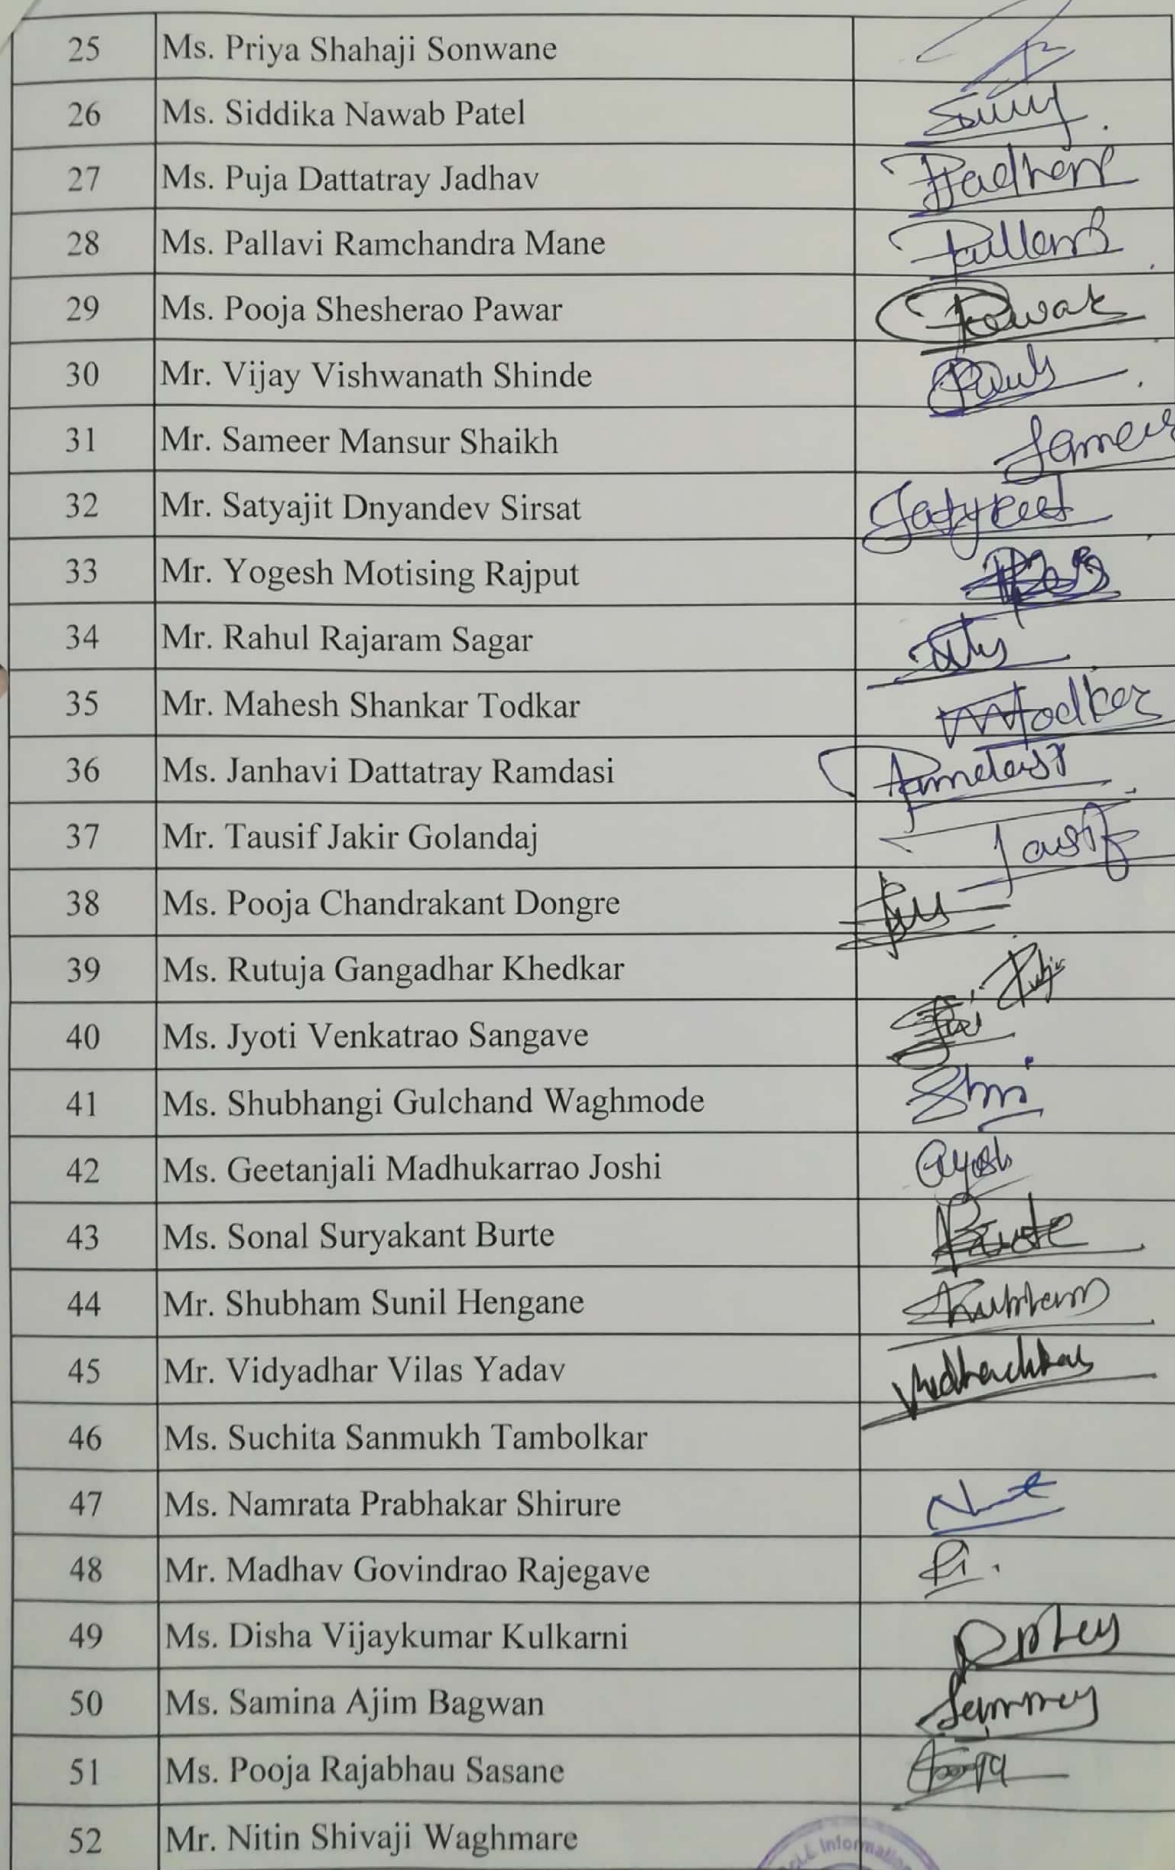 25 Ms. Priya Shahaji Sonwane
26 Ms. Siddika Nawab Patel
27 Ms. Puja Dattatray Jadhav
28 Ms. Pallavi Ramchandra Mane
29 Ms. Pooja Shesherao Pawar Pawar
30 Mr. Vijay Vishwanath Shinde
31 Mr. Sameer Mansur Shaikh Sameer
32 Mr. Satyajit Dnyandev Sirsat
33 Mr. Yogesh Motising Rajput
34 Mr. Rahul Rajaram Sagar
35 Mr. Mahesh Shankar Todkar
36 Ms. Janhavi Dattatray Ramdasi
37 Mr. Tausif Jakir Golandaj Tausif
38 Ms. Pooja Chandrakant Dongre
39 Ms. Rutuja Gangadhar Khedkar
40 Ms. Jyoti Venkatrao Sangave
41 Ms. Shubhangi Gulchand Waghmode
42 Ms. Geetanjali Madhukarrao Joshi
43 Ms. Sonal Suryakant Burte
44 Mr. Shubham Sunil Hengane
45 Mr. Vidyadhar Vilas Yadav
46 Ms. Suchita Sanmukh Tambolkar
47 Ms. Namrata Prabhakar Shirure
48 Mr. Madhav Govindrao Rajegave
49 Ms. Disha Vijaykumar Kulkarni
50 Ms. Samina Ajim Bagwan
51 Ms. Pooja Rajabhau Sasane
52 Mr. Nitin Shivaji Waghmare
Information